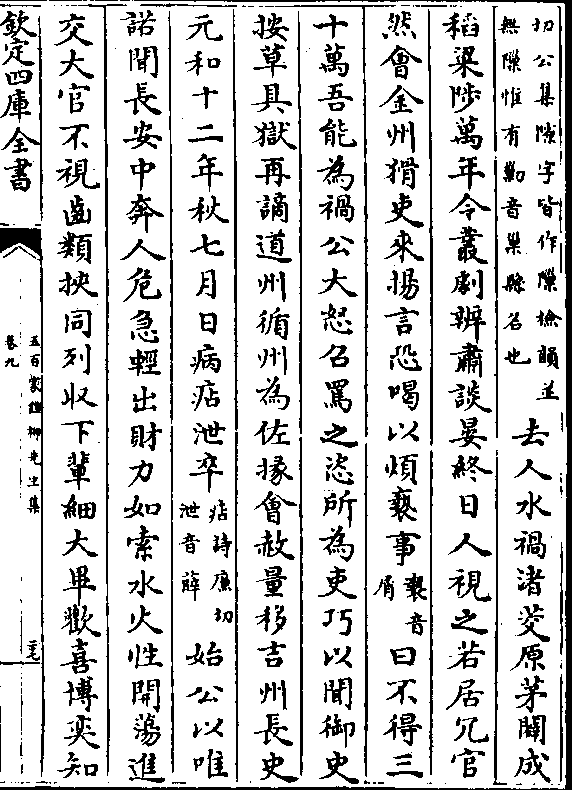 切公集隟字皆作隟檢韻並
無隟惟有勦音巢縣名也
去人水禍渚茭原茅闢成
稻粱陟萬年令叢劇辦肅談晏終日人視之若居冗官
然會金州猾吏來揚言恐喝以煩䙝事
䙝音
屑
曰不得三
十萬吾能為禍公大怒召罵之恣所為吏巧以聞御史
按章具獄再謫道州循州為佐掾會赦量移吉州長史
元和十二年秋七月日病痁泄卒
痁詩廉切
泄音薛
始公以唯
諾聞長安中奔人危急輕出財力如索水火性開蕩進
交大官不視齒類挾同列收下輩細大畢歡喜博奕知
欽定四庫全書
五百家註柳先生集
卷九